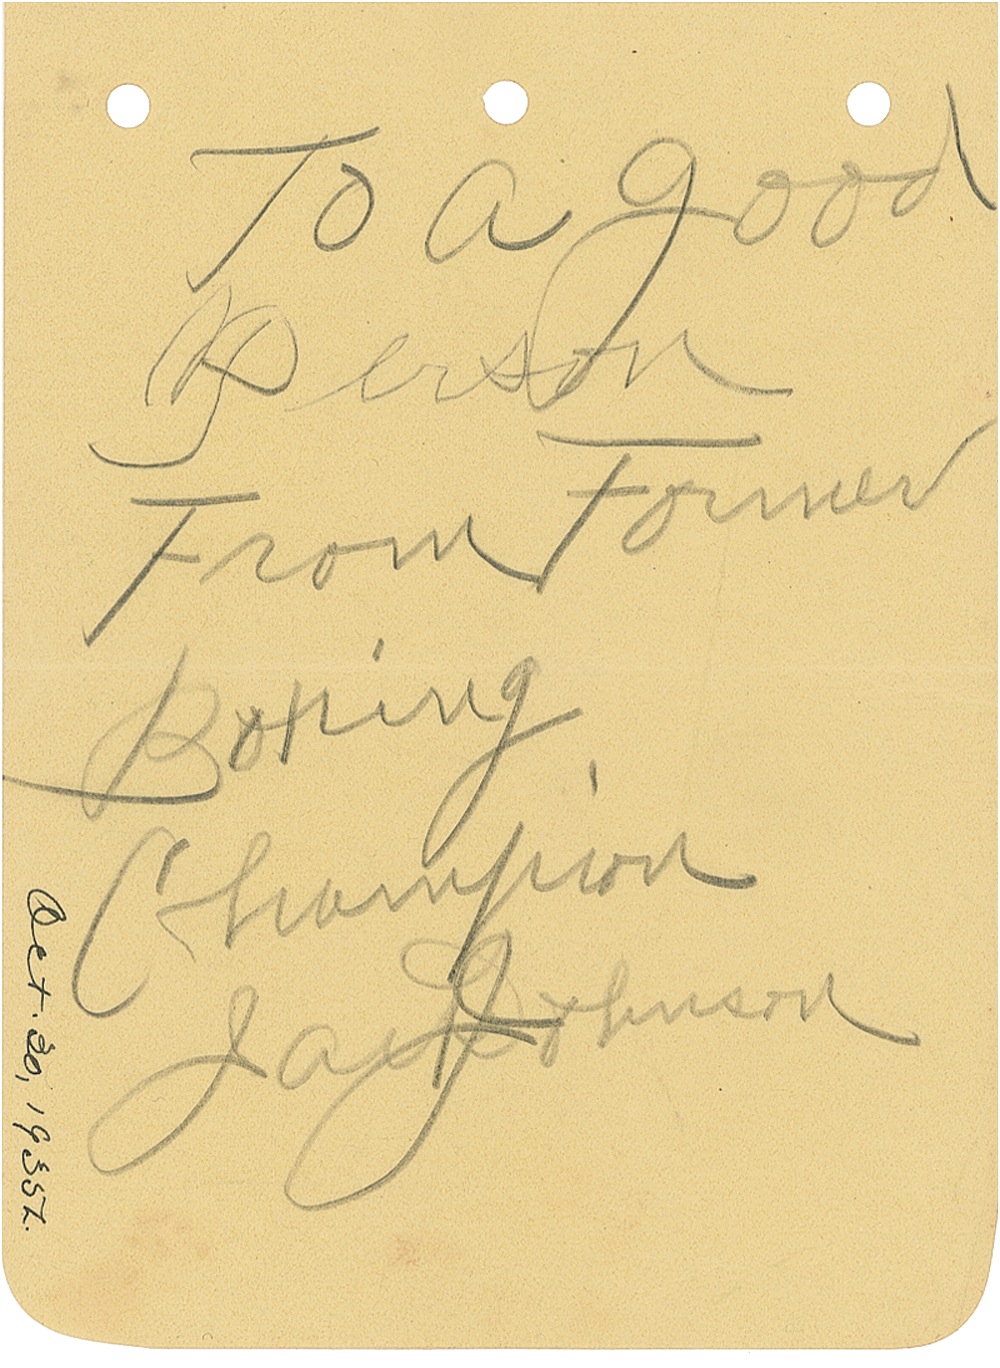 To a good
Person
From Former
Boxing
Champion
Jack Johnson
Oct. 30, 1935